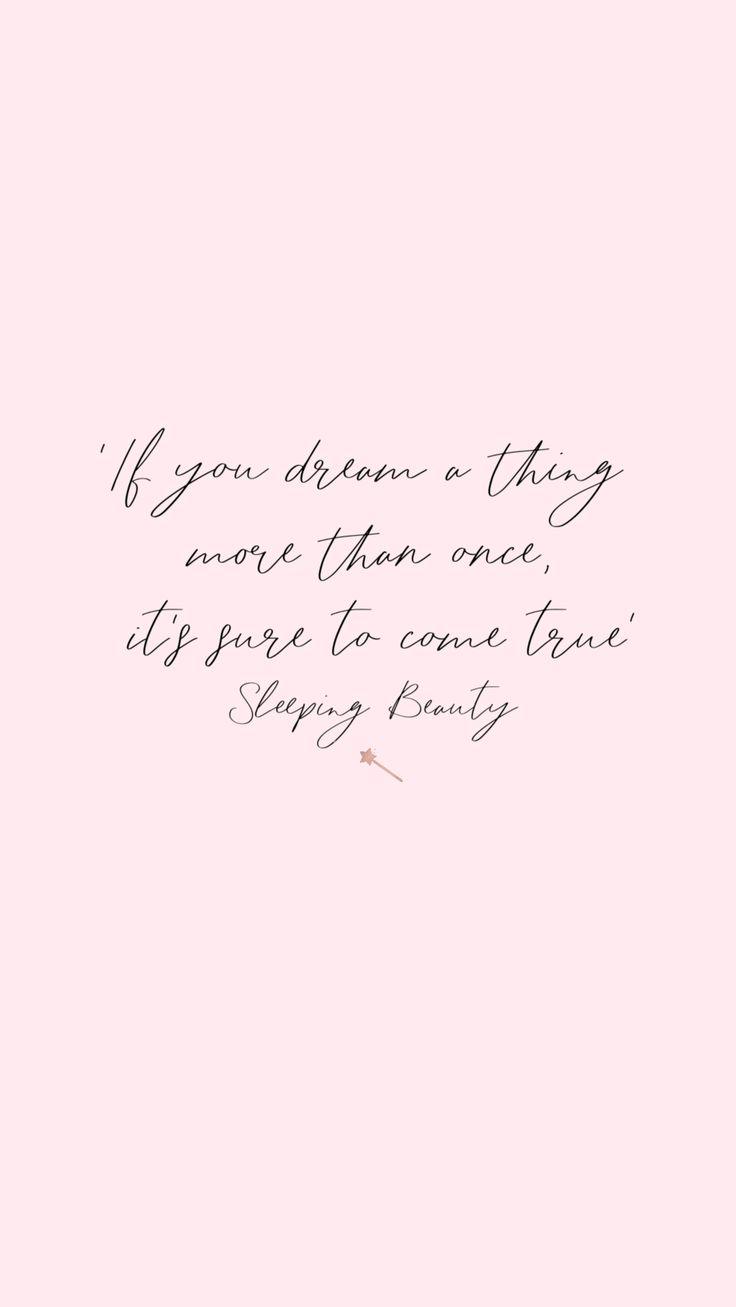 'If you dream a thing
more than once,
it's sure to come true'
Sleeping Beauty